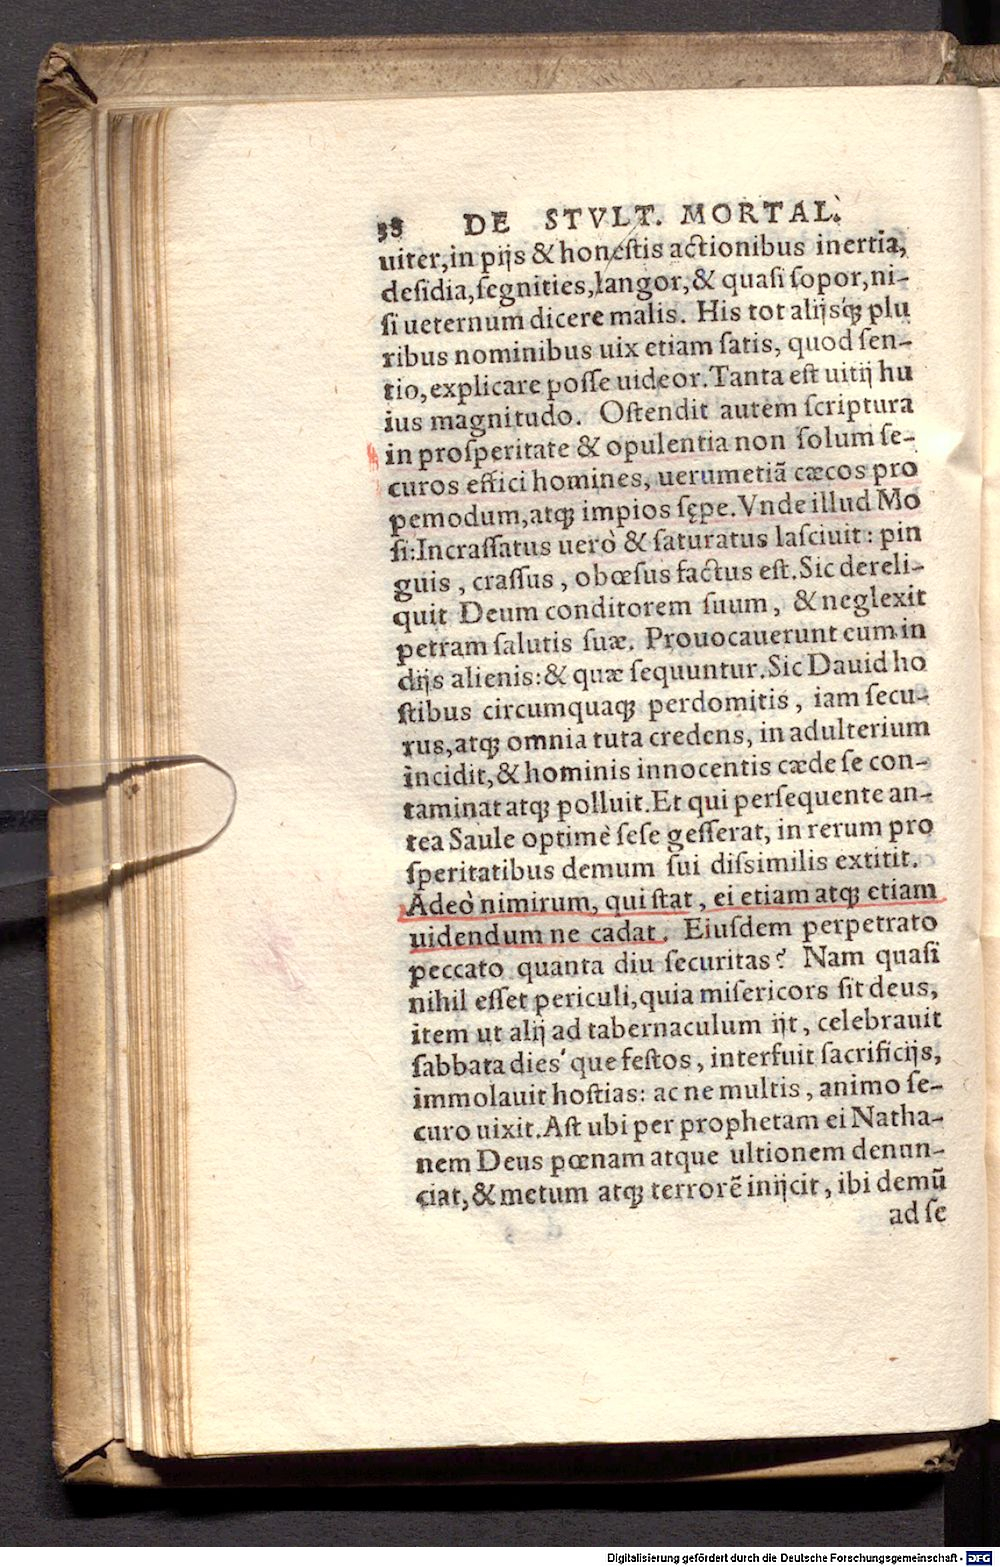 38 DE STVLT. MORTAL.
uiter, in pijs & honestis actionibus inertia,
desidia, segnities, langor, & quasi sopor, ni-
si ueternum dicere malis. His tot alijsq́; plu
ribus nominibus uix etiam satis, quod sen-
tio, explicare posse uideor. Tanta est uitij hu
ius magnitudo. Ostendit autem scriptura
in prosperitate & opulentia non solum se-
curos effici homines, uerumetiã cæcos pro
pemodum, atq; impios sępe. Vnde illud Mo
si: Incrassatus uerò & saturatus lasciuit: pin
guis, crassus, obœsus factus est. Sic dereli-
quit Deum conditorem suum, & neglexit
petram salutis suæ. Prouocauerunt eum in
dijs alienis: & quæ sequuntur. Sic Dauid ho
stibus circumquaq; perdomitis, iam secu-
rus, atq; omnia tuta credens, in adulterium
incidit, & hominis innocentis cæde se con-
taminat atq; polluit. Et qui persequente an-
tea Saule optimè sese gesserat, in rerum pro
speritatibus demum sui dissimilis extitit.
Adeò nimirum, qui stat, ei etiam atq; etiam
uidendum ne cadat. Eiusdem perpetrato
peccato quanta diu securitas? Nam quasi
nihil esset periculi, quia misericors sit deus,
item ut alij ad tabernaculum ijt, celebrauit
sabbata dies'que festos, interfuit sacrificijs,
immolauit hostias: ac ne multis, animo se-
curo uixit. Ast ubi per prophetam ei Natha-
nem Deus pœnam atque ultionem denun-
ciat, & metum atq; terrorẽ inijcit, ibi demũ
ad se
Digitalisierung gefördert durch die Deutsche Forschungsgemeinschaft - DFG